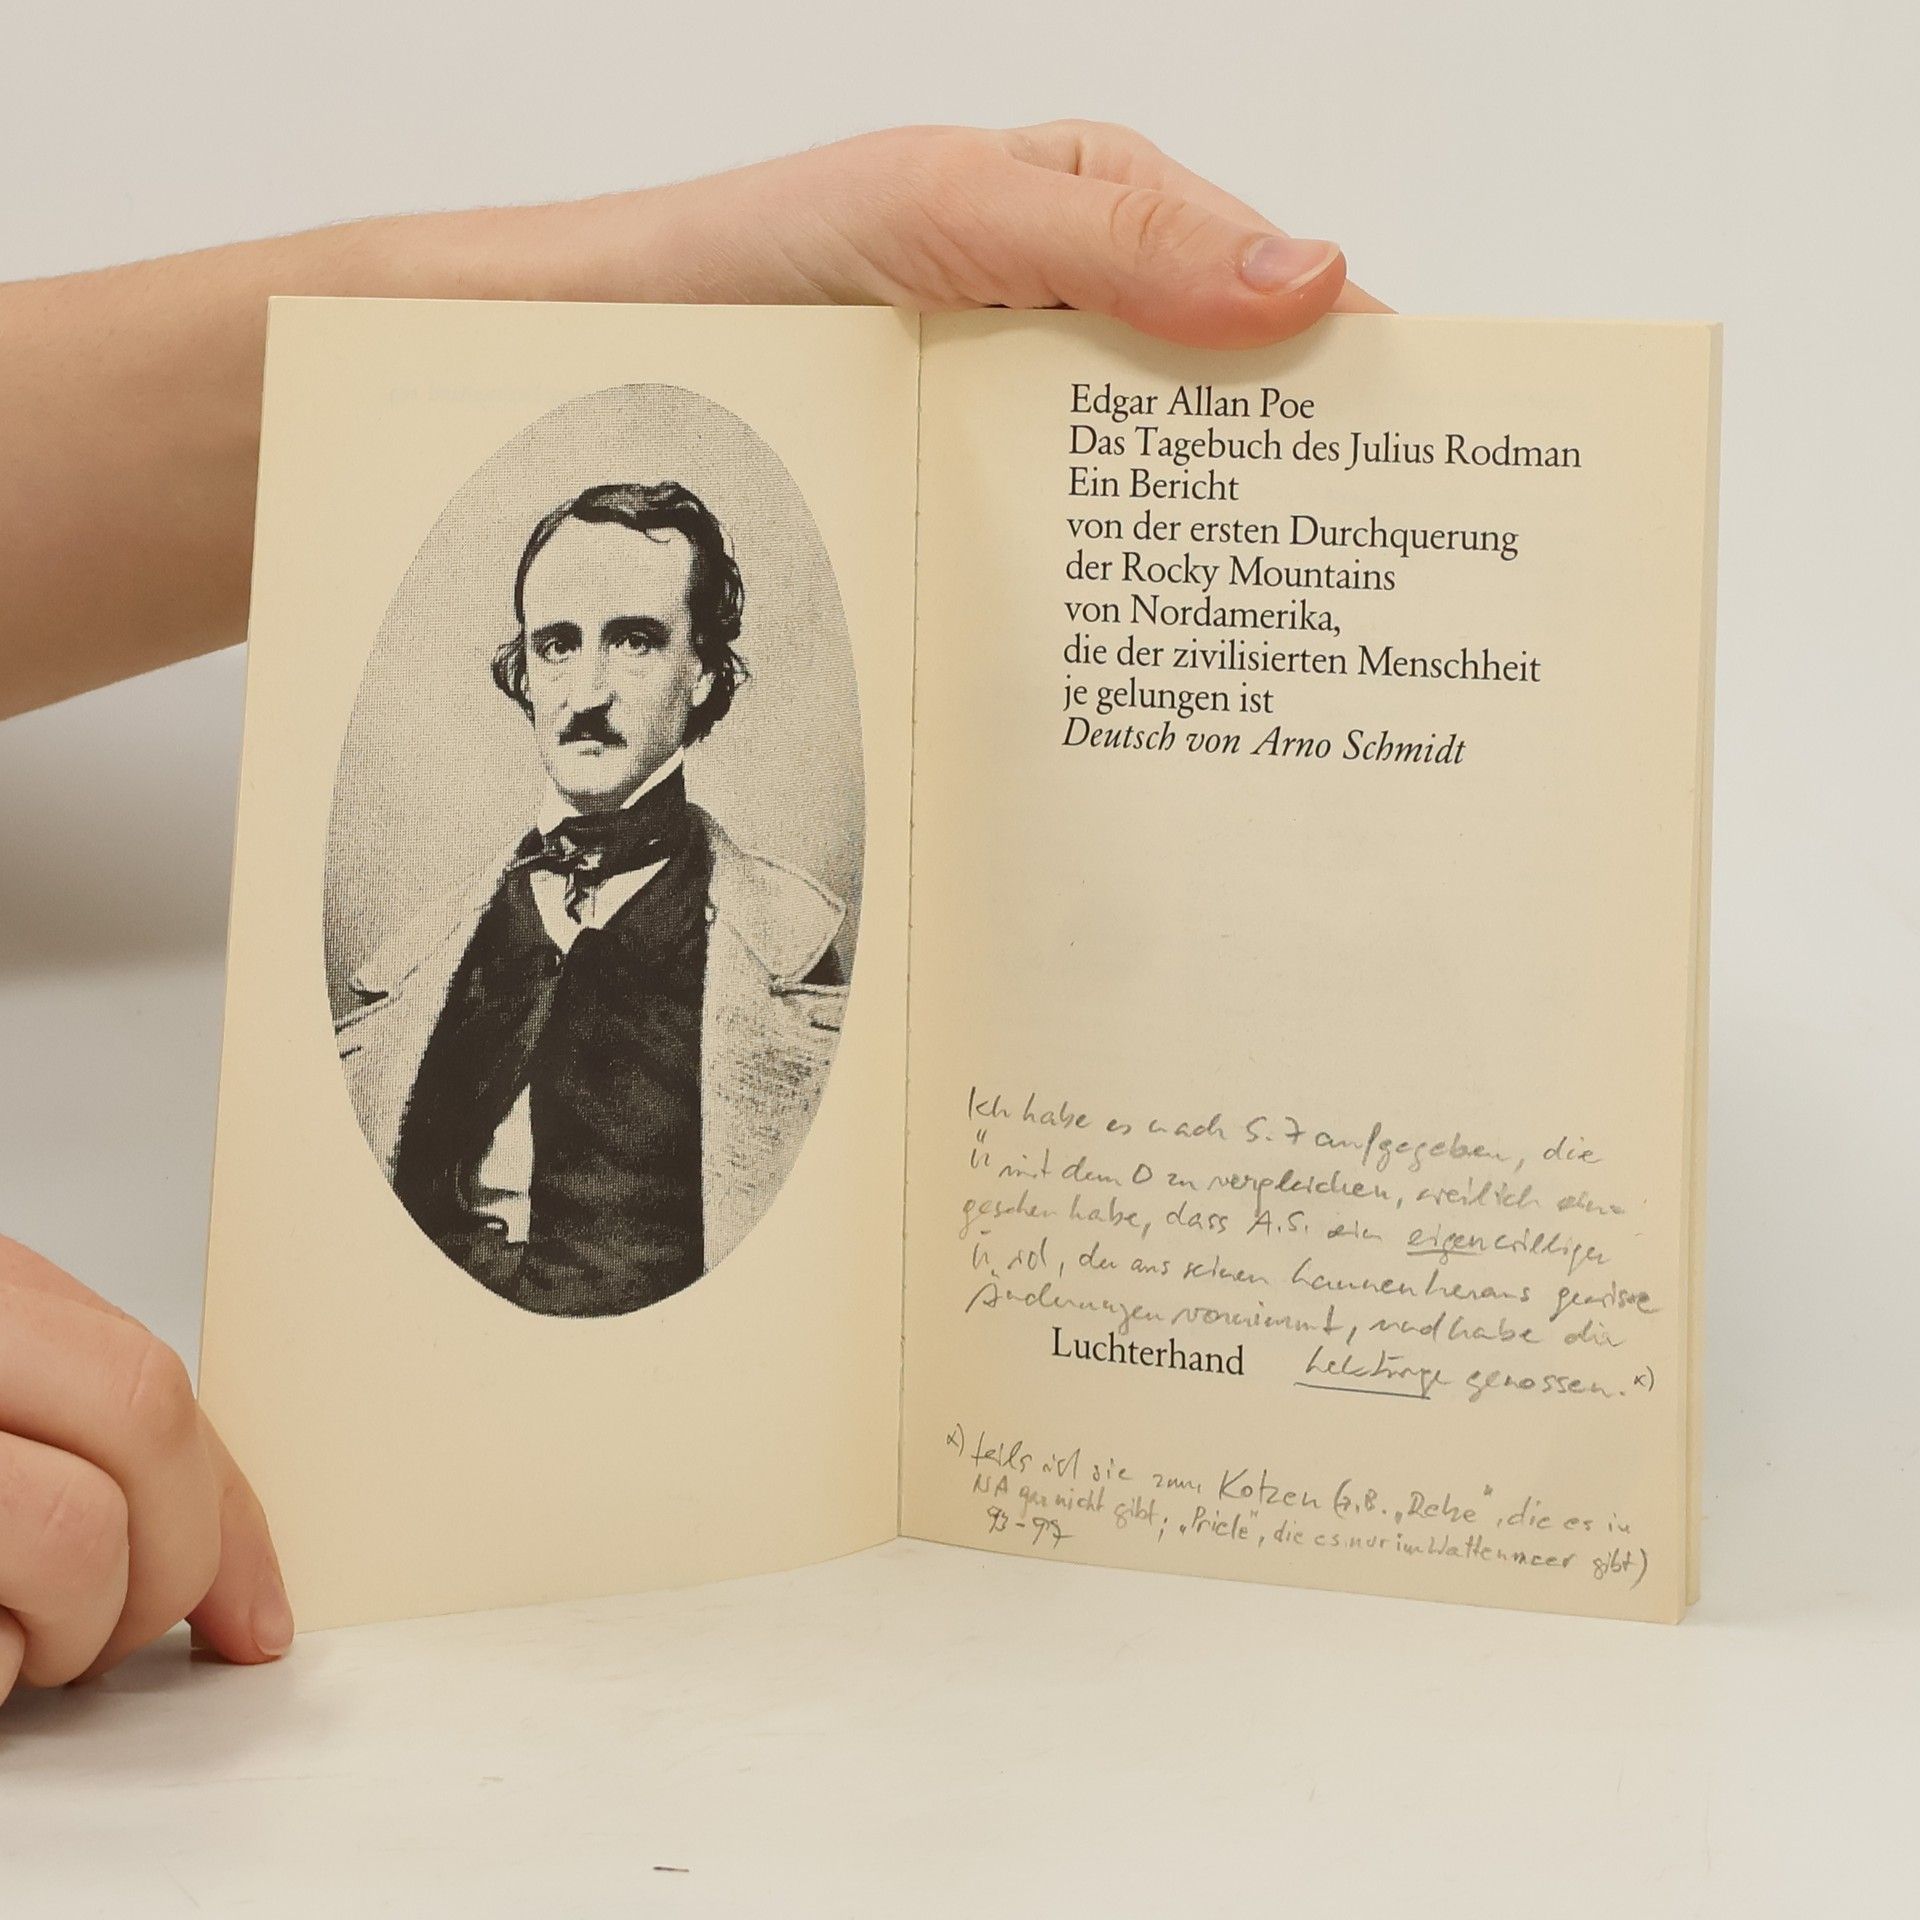 Edgar Allan Poe
Das Tagebuch des Julius Rodman
Ein Bericht
von der ersten Durchquerung
der Rocky Mountains
von Nordamerika,
die der zivilisierten Menschheit
je gelungen ist
Deutsch von Arno Schmidt
Ich habe es nach S. 7 aufgegeben, die
Ü mit dem O zu vergleichen, weil ich ein-
gesehen habe, dass A.S. ein eigenwilliger
Ü ist, der aus seinen heraus gewisse
Änderungen vornimmt, und habe die
Luchterhand
Lektüre genossen. x)
x) teils ist sie zum Kotzen (z.B. „Rehe", die es in
NA gar nicht gibt; „Priele", die es nur im Wattenmeer gibt)
93-97